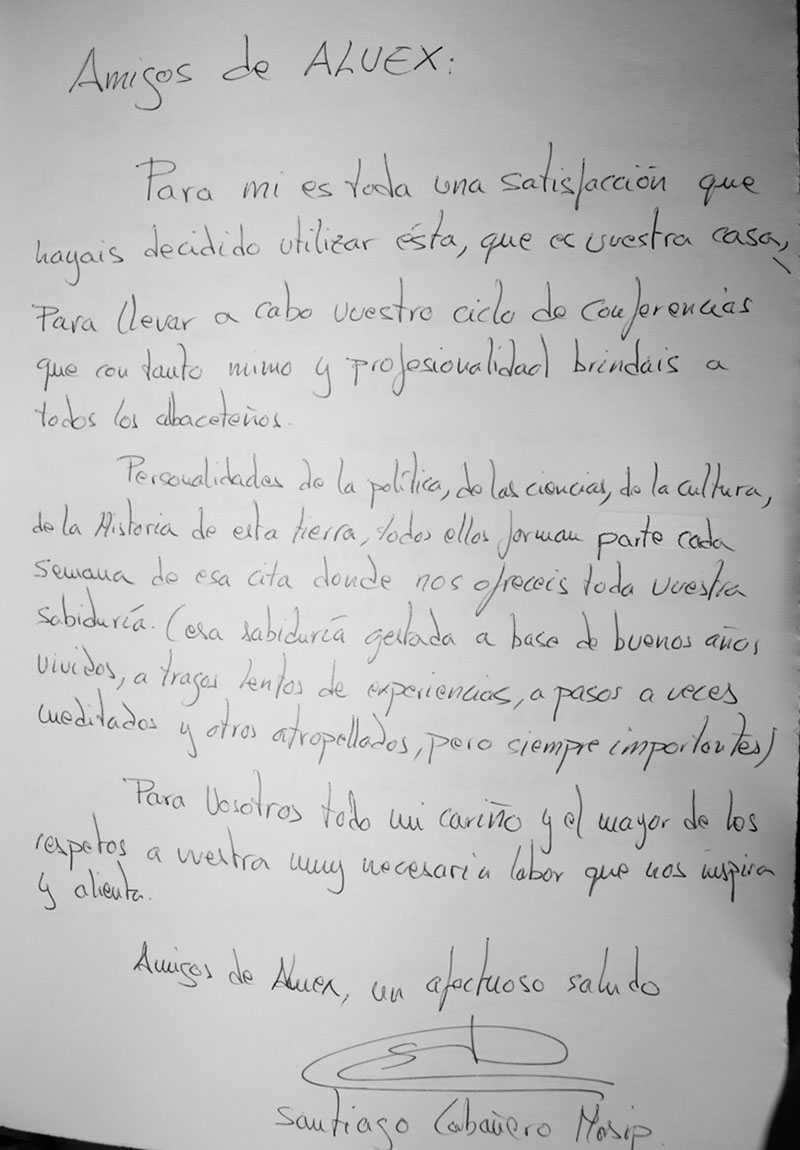 Amigos de ALUEX:
Para mi es toda una satisfacción que
hayais decidido utilizar ésta, que es vuestra casa,
Para llevar a cabo vuestro ciclo de conferencias
que con tanto mimo y profesionalidad brindais a
todos los albaceteños.
Personalidades de la política, de las ciencias, de la cultura,
de la Historia de esta tierra, todos ellos forman parte cada
semana de esa cita donde nos ofreceis toda vuestra
sabiduría. (esa sabiduría gestada a base de buenos años
vividos, a tragos lentos de experiencias, a pasos a veces
meditados y otros atropellados, pero siempre importantes)
Para Vosotros todo mi cariño y el mayor de los
respetos a vuestra muy necesaria labor que nos inspira
y alienta.
Amigos de Aluex, un afectuoso saludo
Santiago Cabañero Masip